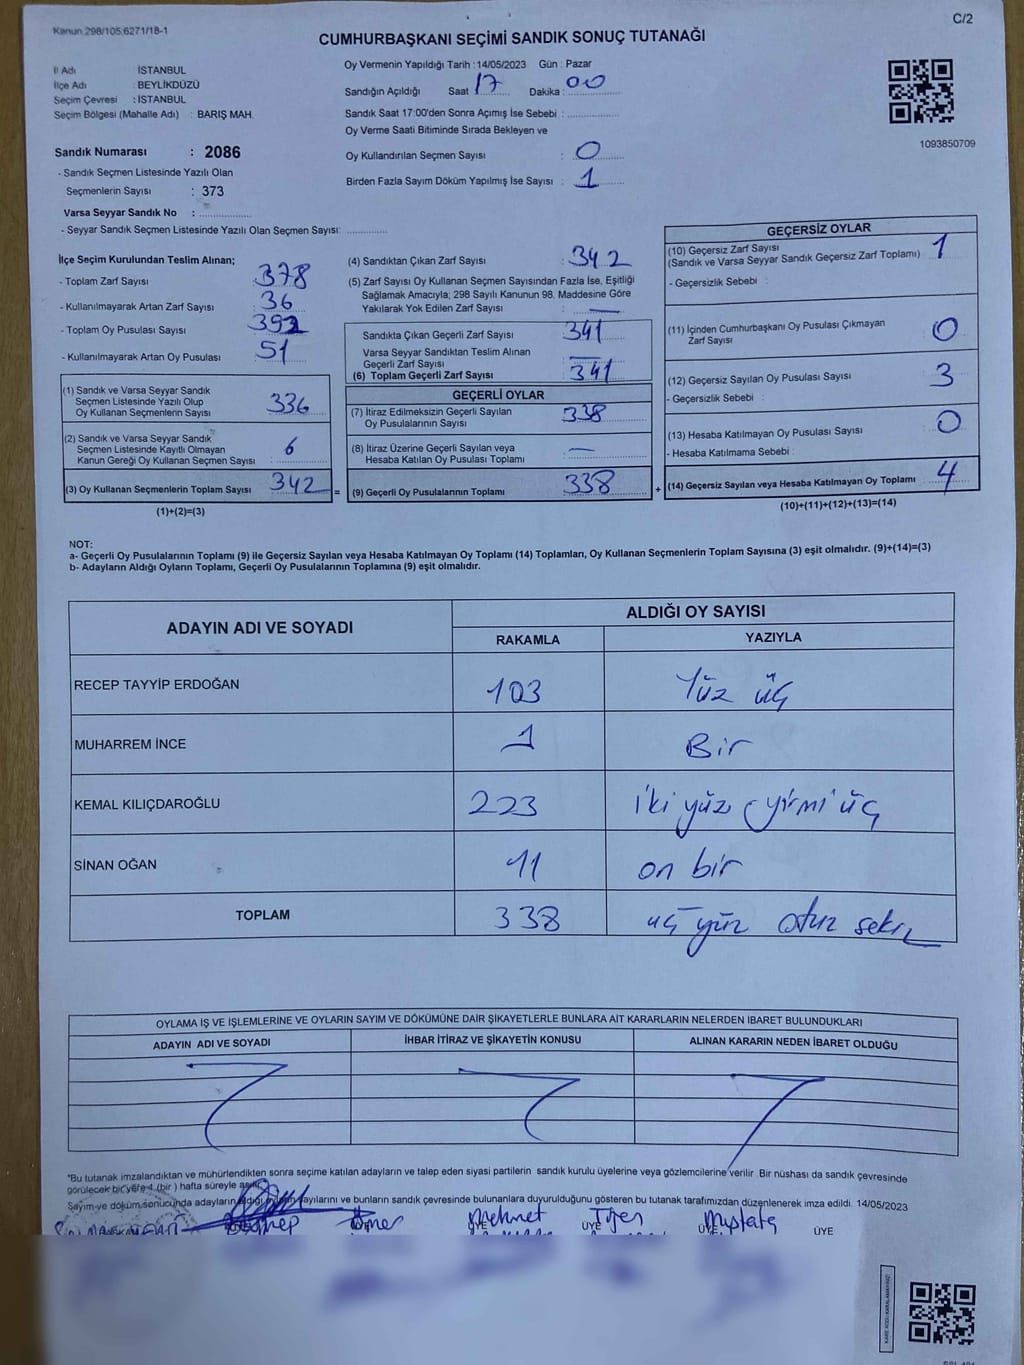 Kanun 298/105,6271/18-1
C/2
CUMHURBAŞKANI SEÇİMİ SANDIK SONUÇ TUTANAĞI
İl Adı : İSTANBUL
İlçe Adı : BEYLİKDÜZÜ
Seçim Çevresi : İSTANBUL
Seçim Bölgesi (Mahalle Adı) : BARIŞ MAH.
Sandık Numarası : 2086
- Sandık Seçmen Listesinde Yazılı Olan
Seçmenlerin Sayısı : 373
Varsa Seyyar Sandık No : ................
- Seyyar Sandık Seçmen Listesinde Yazılı Olan Seçmen Sayısı: ............
Oy Vermenin Yapıldığı Tarih : 14/05/2023 Gün : Pazar
Sandığın Açıldığı Saat 17 Dakika : 00
Sandık Saat 17:00'den Sonra Açımış İse Sebebi : ................
Oy Verme Saati Bitiminde Sırada Bekleyen ve
Oy Kullandırılan Seçmen Sayısı : 0
Birden Fazla Sayım Döküm Yapılmış İse Sayısı : 1
1093850709
İlçe Seçim Kurulundan Teslim Alınan;
- Toplam Zarf Sayısı : 378
- Kullanılmayarak Artan Zarf Sayısı : 36
- Toplam Oy Pusulası Sayısı : 393
- Kullanılmayarak Artan Oy Pusulası : 51
(1) Sandık ve Varsa Seyyar Sandık
Seçmen Listesinde Yazılı Olup
Oy Kullanan Seçmenlerin Sayısı : 336
(2) Sandık ve Varsa Seyyar Sandık
Seçmen Listesinde Kayıtlı Olmayan
Kanun Gereği Oy Kullanan Seçmen Sayısı : 6
(3) Oy Kullanan Seçmenlerin Toplam Sayısı : 342 =
(1)+(2)=(3)
(4) Sandıktan Çıkan Zarf Sayısı : 342
(5) Zarf Sayısı Oy Kullanan Seçmen Sayısından Fazla İse, Eşitliği
Sağlamak Amacıyla; 298 Sayılı Kanunun 98. Maddesine Göre
Yakılarak Yok Edilen Zarf Sayısı : —
Sandıkta Çıkan Geçerli Zarf Sayısı : 341
Varsa Seyyar Sandıktan Teslim Alınan
Geçerli Zarf Sayısı : —
(6) Toplam Geçerli Zarf Sayısı : 341
GEÇERLİ OYLAR
(7) İtiraz Edilmeksizin Geçerli Sayılan
Oy Pusulalarının Sayısı : 338
(8) İtiraz Üzerine Geçerli Sayılan veya
Hesaba Katılan Oy Pusulası Toplamı : —
(9) Geçerli Oy Pusulalarının Toplamı : 338 +
GEÇERSİZ OYLAR
(10) Geçersiz Zarf Sayısı
(Sandık ve Varsa Seyyar Sandık Geçersiz Zarf Toplamı) : 1
- Geçersizlik Sebebi :
(11) İçinden Cumhurbaşkanı Oy Pusulası Çıkmayan
Zarf Sayısı : 0
(12) Geçersiz Sayılan Oy Pusulası Sayısı : 3
- Geçersizlik Sebebi :
(13) Hesaba Katılmayan Oy Pusulası Sayısı : 0
- Hesaba Katılmama Sebebi :
(14) Geçersiz Sayılan veya Hesaba Katılmayan Oy Toplamı : 4
(10)+(11)+(12)+(13)=(14)
NOT:
a- Geçerli Oy Pusulalarının Toplamı (9) ile Geçersiz Sayılan veya Hesaba Katılmayan Oy Toplamı (14) Toplamları, Oy Kullanan Seçmenlerin Toplam Sayısına (3) eşit olmalıdır. (9)+(14)=(3)
b- Adayların Aldığı Oyların Toplamı, Geçerli Oy Pusulalarının Toplamına (9) eşit olmalıdır.
ADAYIN ADI VE SOYADI ALDIĞI OY SAYISI
RAKAMLA YAZIYLA
RECEP TAYYİP ERDOĞAN 103 Yüz üç
MUHARREM İNCE 1 Bir
KEMAL KILIÇDAROĞLU 223 iki yüz yirmi üç
SİNAN OĞAN 11 on bir
TOPLAM 338 üç yüz otuz sekiz
OYLAMA İŞ VE İŞLEMLERİNE VE OYLARIN SAYIM VE DÖKÜMÜNE DAİR ŞİKAYETLERLE BUNLARA AİT KARARLARIN NELERDEN İBARET BULUNDUKLARI
ADAYIN ADI VE SOYADI İHBAR İTİRAZ VE ŞİKAYETİN KONUSU ALINAN KARARIN NEDEN İBARET OLDUĞU
*Bu tutanak imzalandıktan ve mühürlendikten sonra seçime katılan adayların ve talep eden siyasi partilerin sandık kurulu üyelerine veya gözlemcilerine verilir. Bir nüshası da sandık çevresinde
görülecek bir yere 1 (bir ) hafta süreyle asılır.
Sayım ve döküm sonucunda adayların aldığı sayılarını ve bunların sandık çevresinde bulunanlara duyurulduğunu gösteren bu tutanak tarafımızdan düzenlenerek imza edildi. 14/05/2023
Ömer Mehmet Mustafa
ÜYE ÜYE ÜYE ÜYE